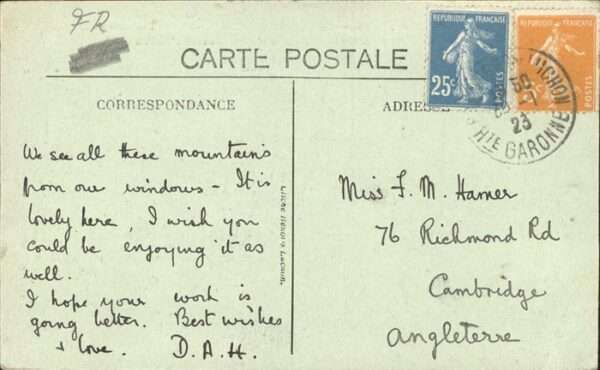 FR
CARTE POSTALE
CORRESPONDANCE
ADRESSE
REPUBLIQUE FRANÇAISE
25c
POSTES
REPUBLIQUE FRANÇAISE
POSTES
LUCHON
23
HTE GARONNE
We see all these mountains
from our windows – It is
lovely here, I wish you
could be enjoying it as
well.
I hope your work is
going better. Best wishes
+ love. D.A.H.
Miss F. M. Hamer
76 Richmond Rd
Cambridge
Angleterre